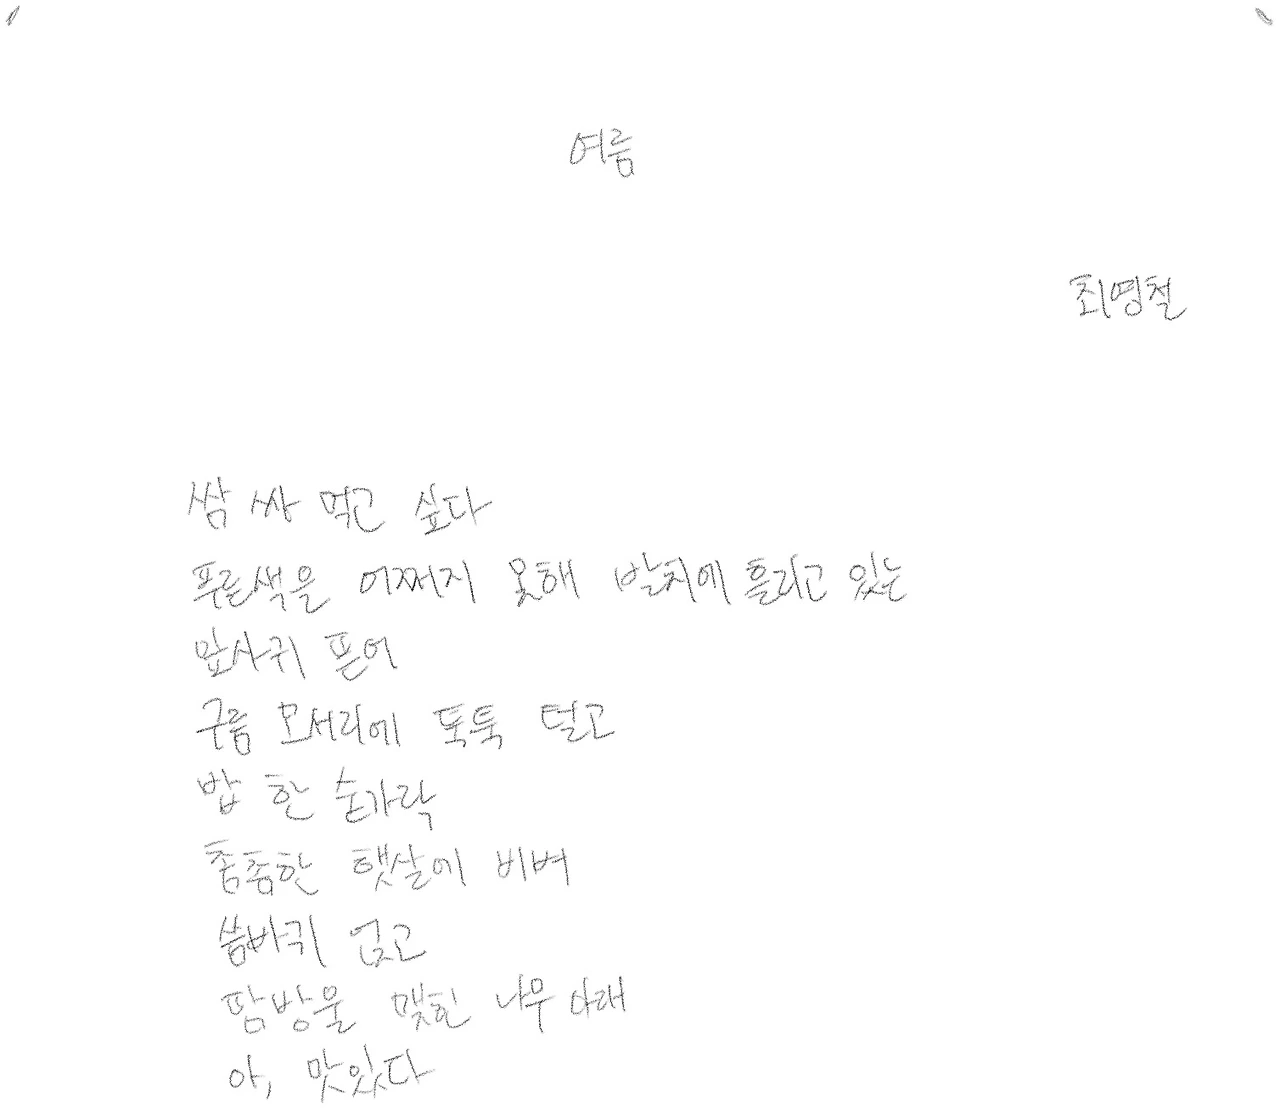 여름
최영철
쌈 싸 먹고 싶다
푸른색을 어쩌지 못해 발치에 흘리고 있는
잎사귀 뜯어
구름 모서리에 톡톡 털고
밥 한 숟가락
촘촘한 햇살에 비벼
씀바귀 얹고
땀방울 맺힌 나무 아래
아, 맛있다